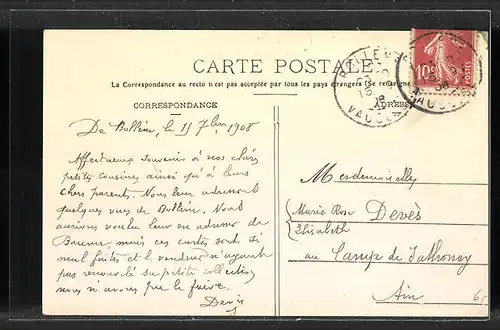 CARTE POSTALE
La Correspondance au recto n'est pas acceptée par tous les pays étrangers (Se renseigner
CORRESPONDANCE
ADRESSE
10c
POSTES
BOLLENE
VAUCLUSE
De Bollène, le 11 7bre 1908
Affectueux souvenir à nos chers
petits cousines ainsi qu'à leurs
chers parents. Nous leur adressons
quelques vues de Bollène. Nous
aurions voulu leur en adresser de
Beaume, mais ces cartes sont si
mal faites et le vendeur n'ayant
pas renouvelé sa petite collection
nous n'avons pu le faire.
Devès
Mesdemoiselles
Marie Rose Devès
Elisabeth
au Camp de
Ain